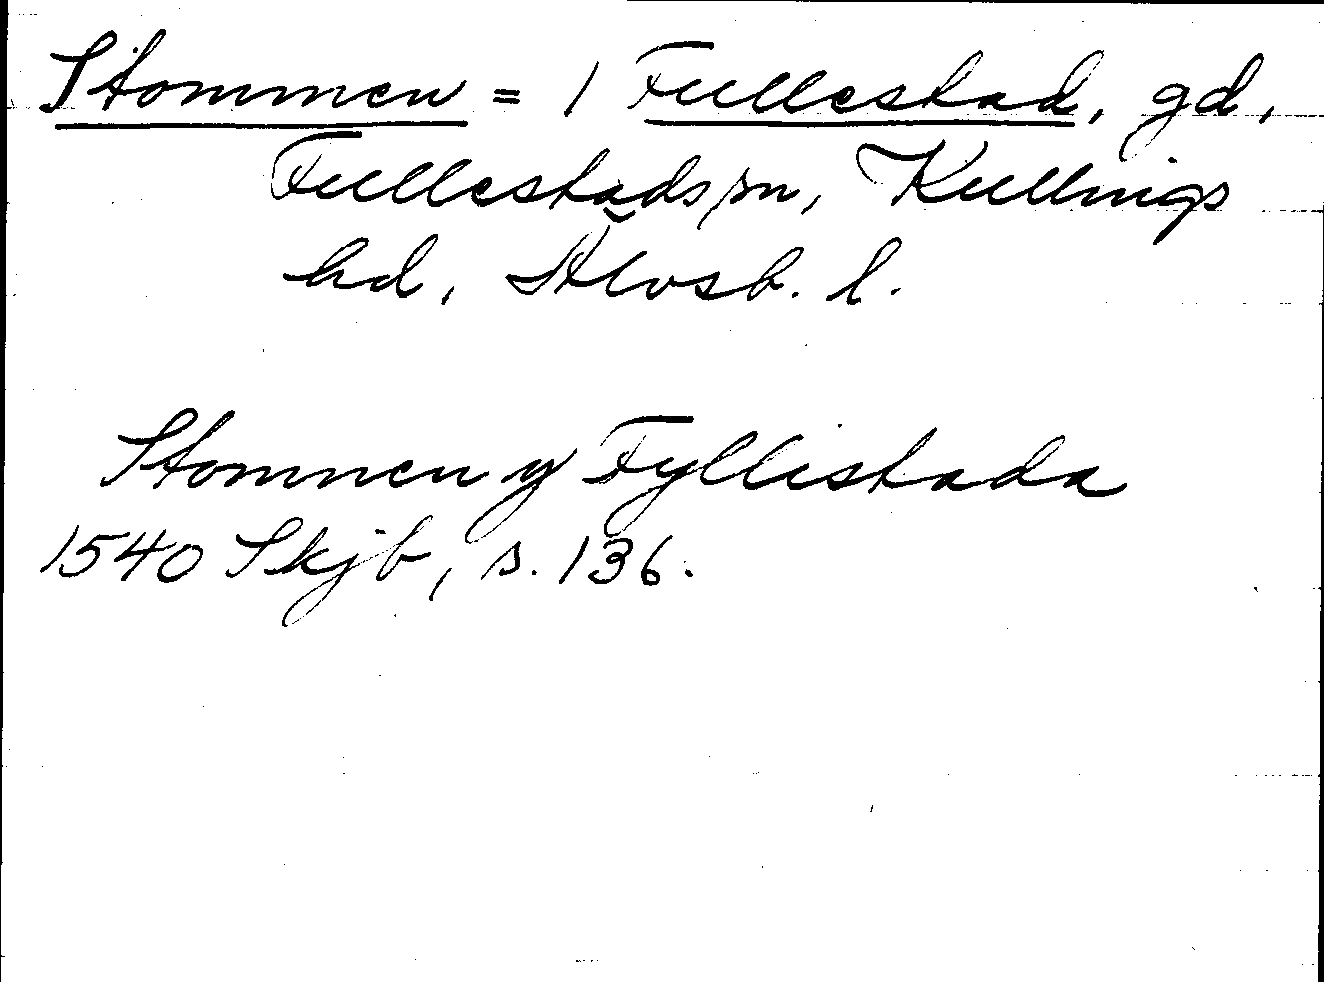 Stommen = 1 Fullestad, gd,
Fullestads sn, Kullings
hd, Älvsb. l.
Stommen y Fyllistada
1540 Skjb, s. 136.